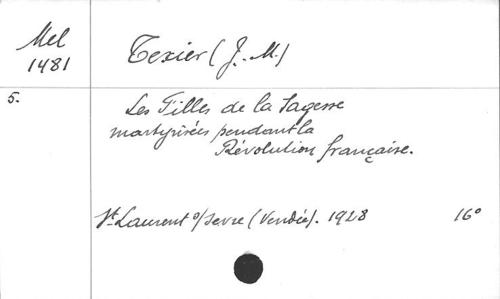 Mel
1481
Texier (J. M.)
5.
Les Filles de la Sagesse
martyrisées pendant la
Révolution française.
St Laurent s/Sevre (Vendée). 1928 16º